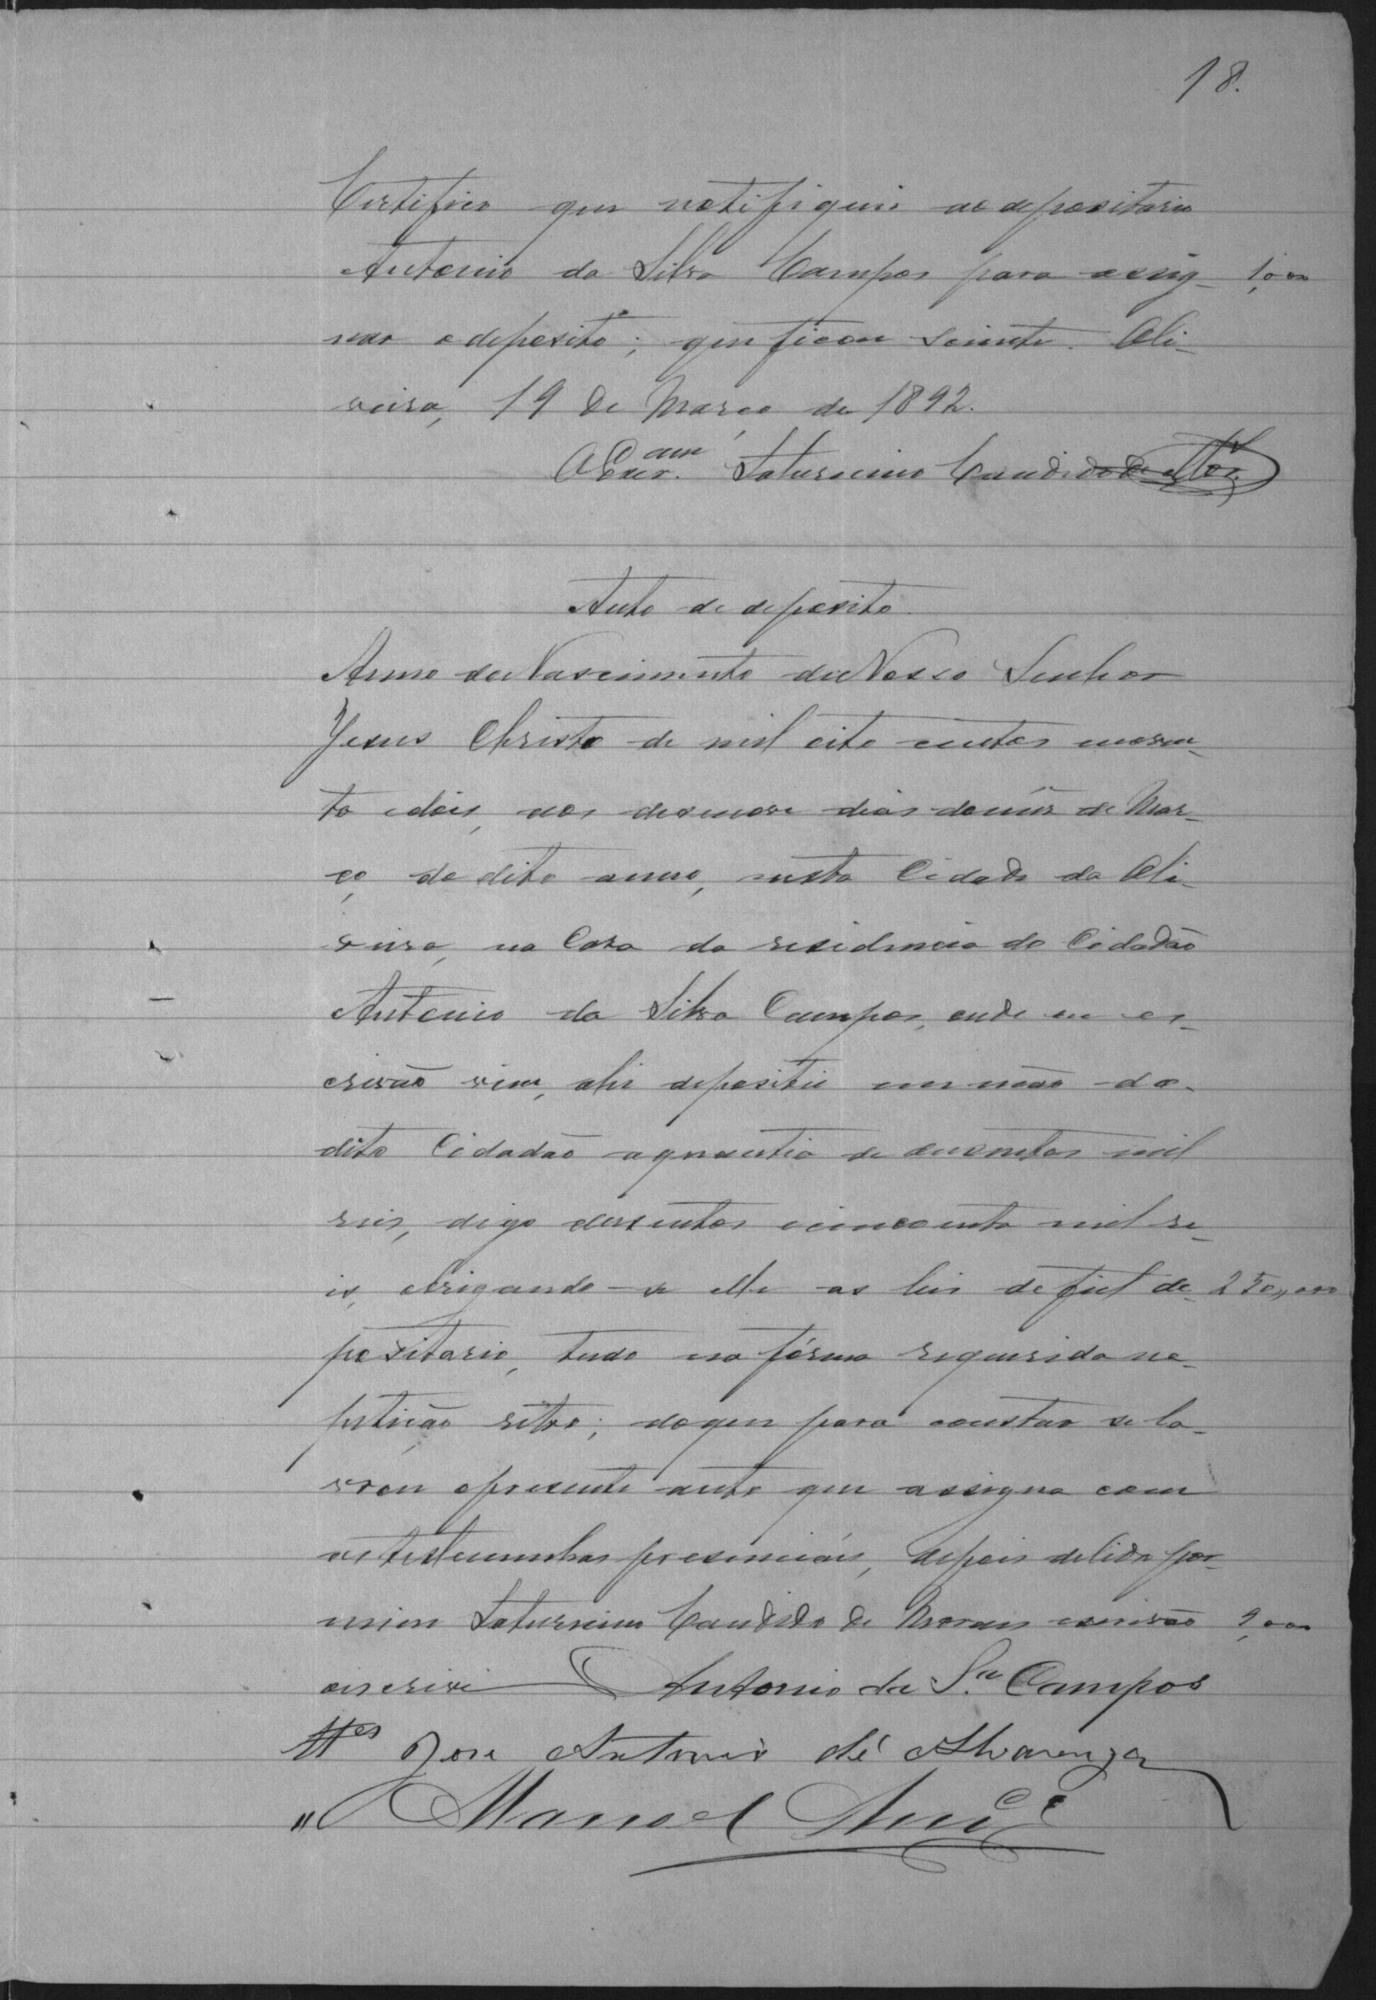 18.
Certifico que notifiquei ao depositario
Antonio da Silva Campos para assig- 1,000
nar o deposito; que ficou sciente. Oli-
veira, 19 de Março de 1892.
O Escr.am Saturnino Candido de Mor.
Auto de deposito.
Anno do Nascimento de Nosso Senhor
Jesus Christo de mil oito centos noven-
ta e dois, aos desenove dias do mês de Mar-
ço, do dito anno, nesta Cidade da Oli-
veira, na Casa da residencia do Cidadão
Antonio da Silva Campos, onde eu es-
crivão vim, ahi depositei em mão do
dito Cidadão a quantia de dusentos mil
reis, digo dusentos cincoenta mil re-
is, obrigando-se elle as leis de fiel de- 250,000
positario, tudo na fórma requerida na
petição retro; do que para constar se la-
vrou o presente auto que assigna com
as testemunhas presenciáes, depois de lido por
mim Saturnino Candido de Moraes escrivão 2,000
o escrivi Antonio da S.a Campos
Ttes José Antonio de Alvarenga
" Manoel